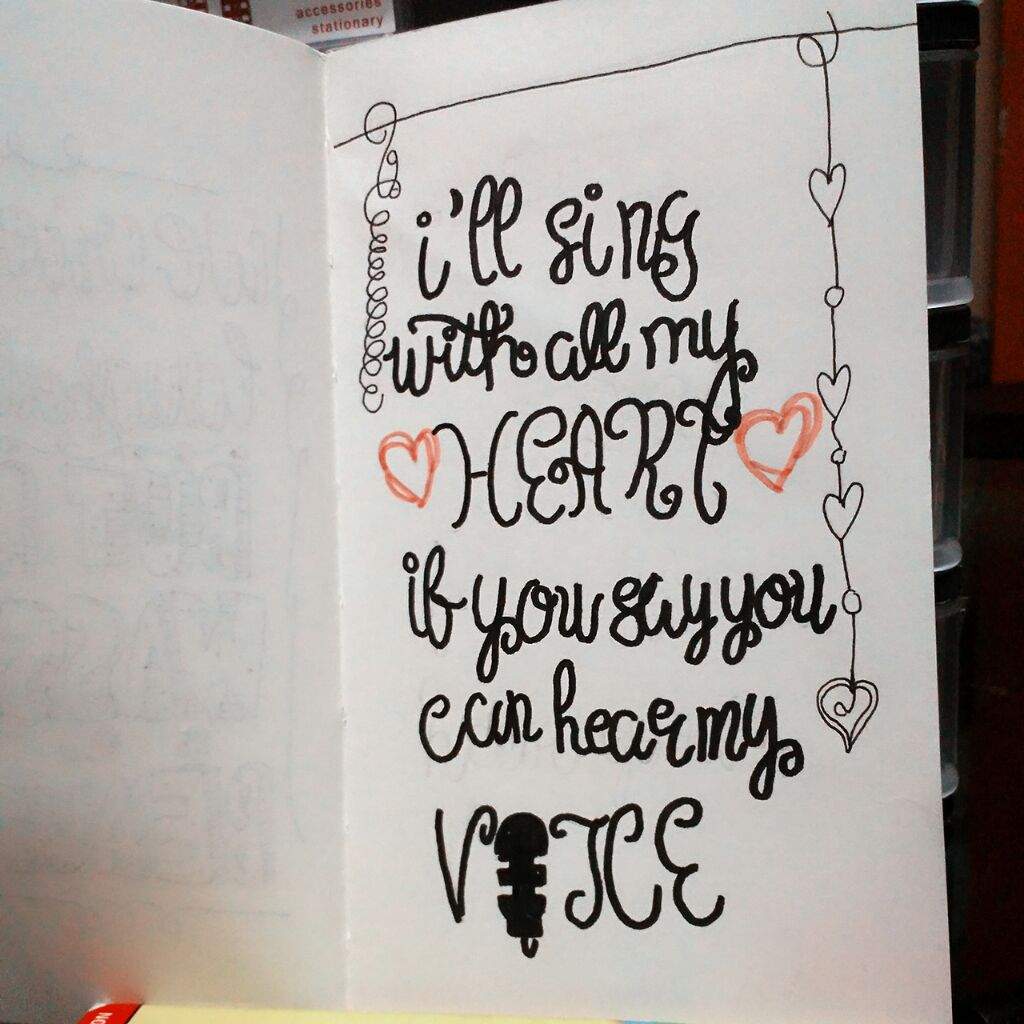 accessories
stationary
i'll sing
with all my
HEART
if you say you
can hear my
VOICE
NO